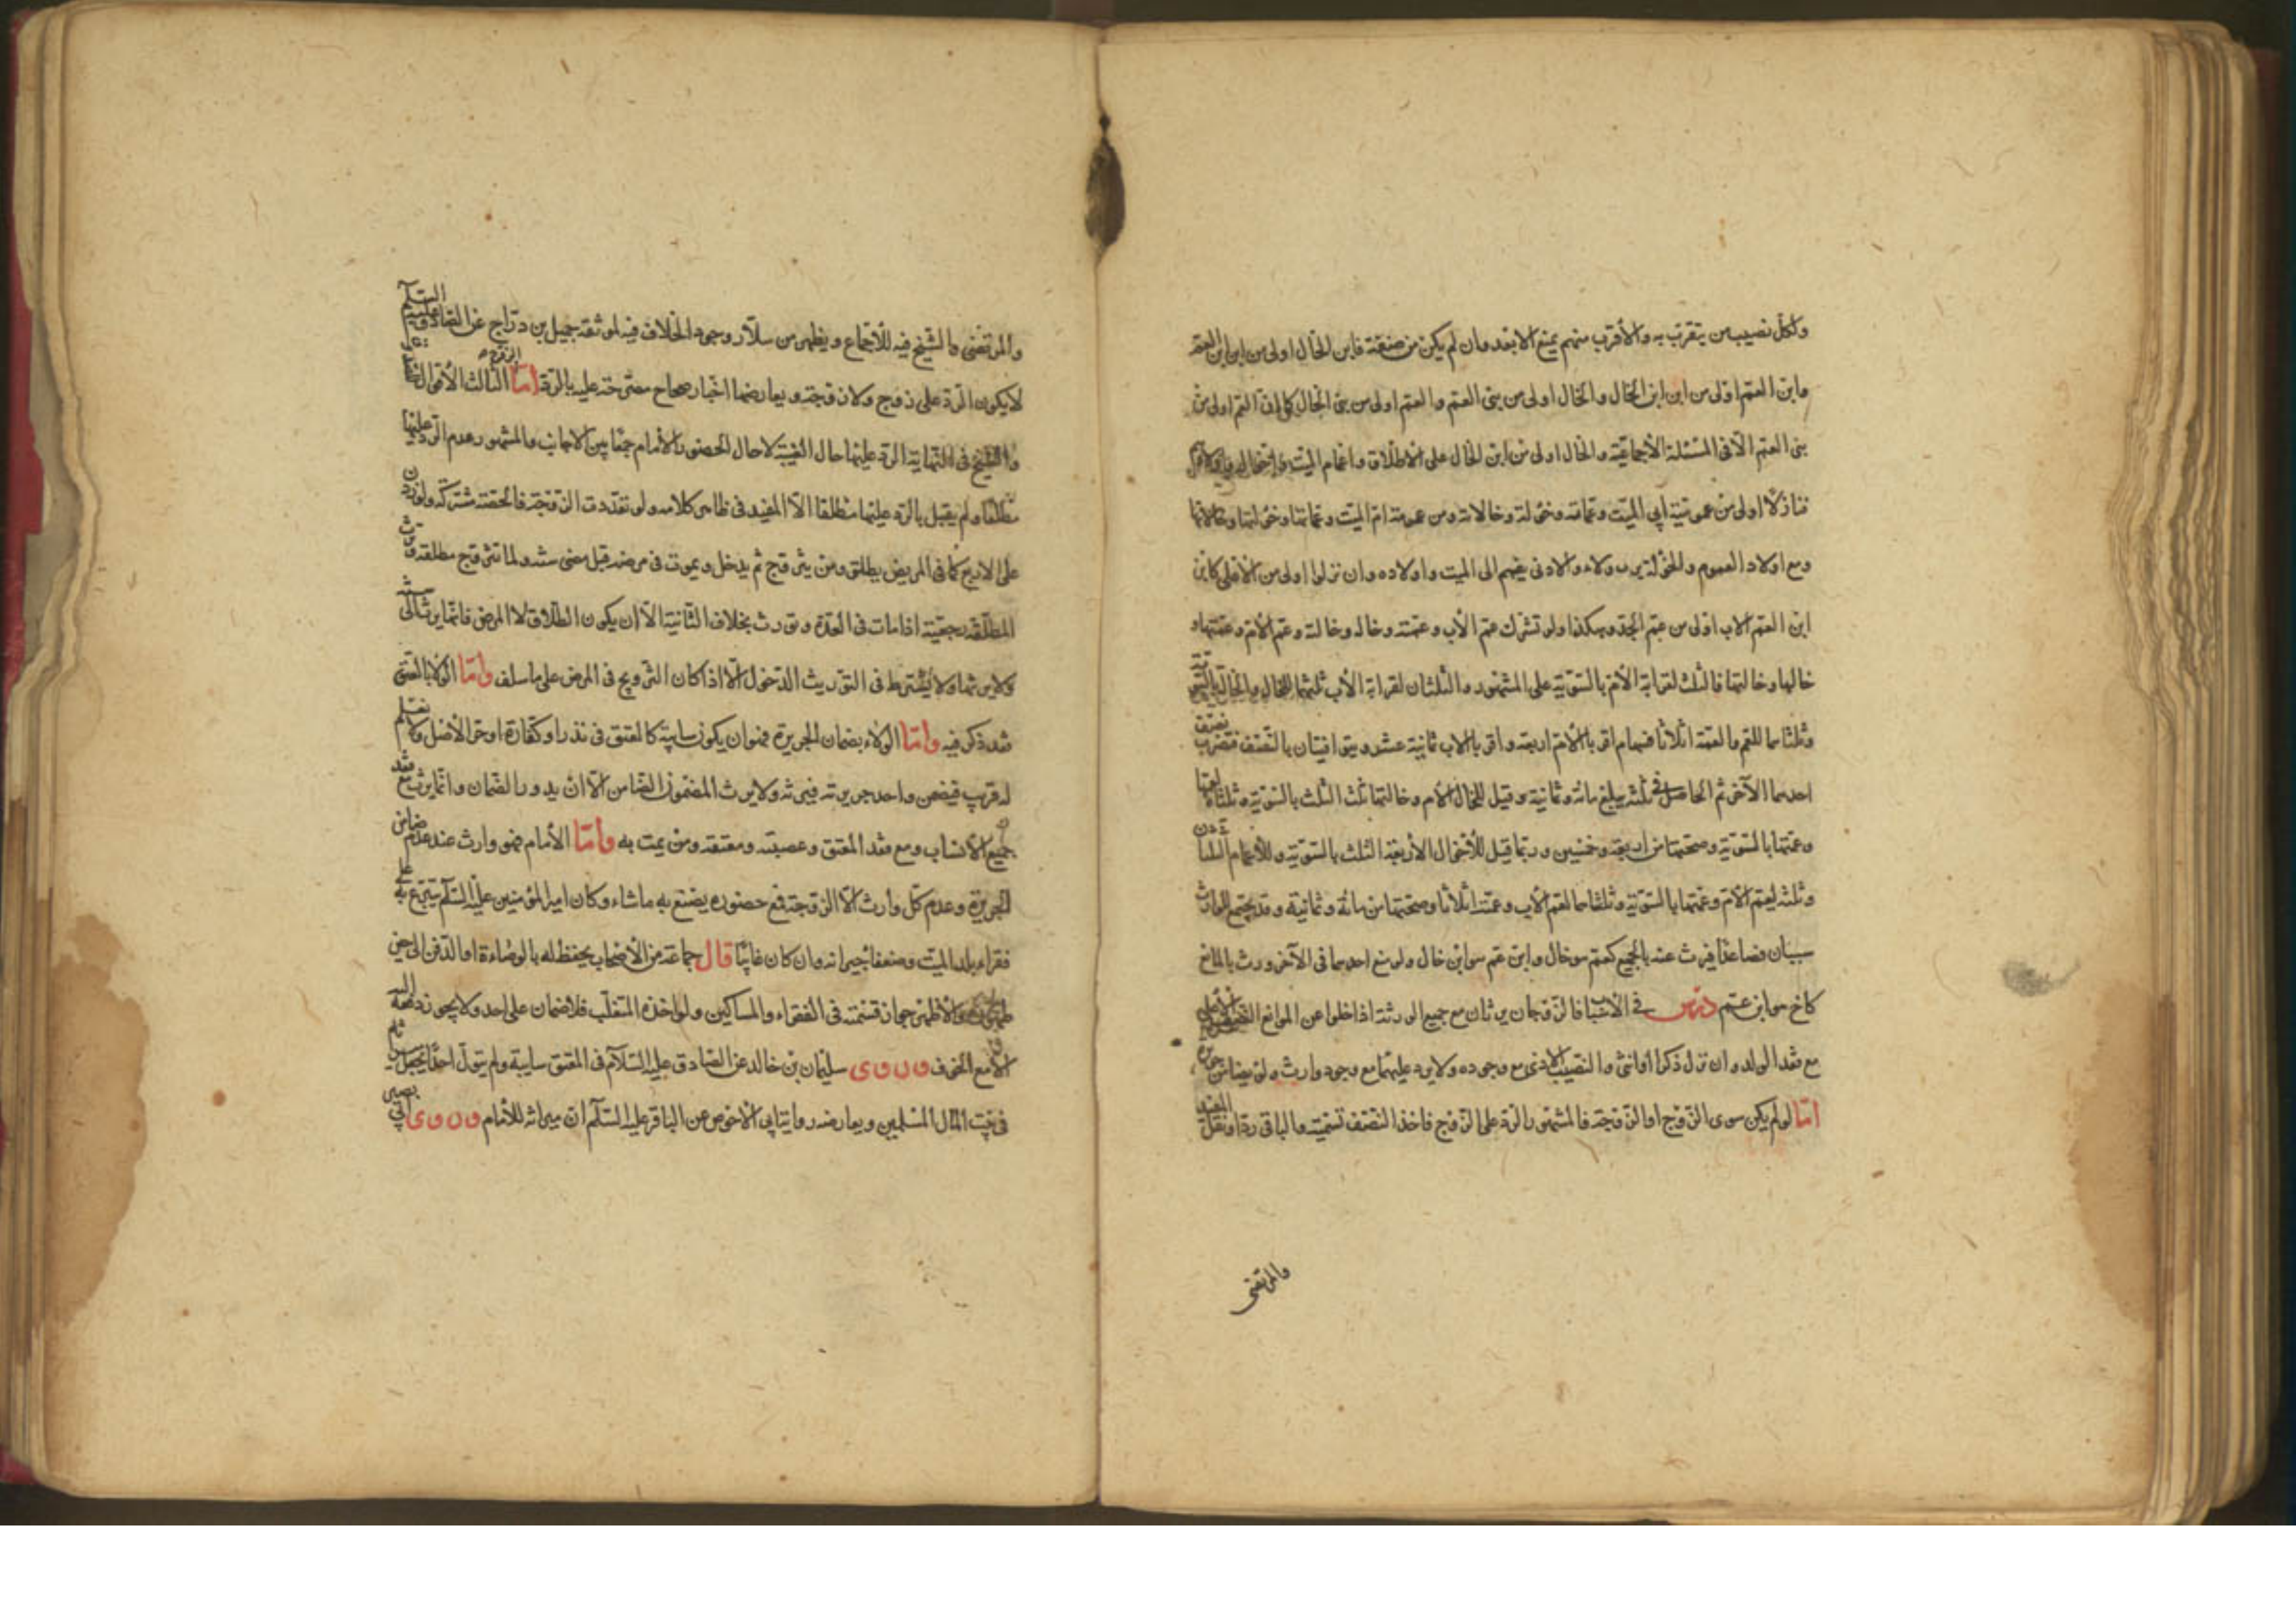 ولكل نصيب من يتقرب به والأقرب منهم يمنع الابعد وان لم يكن من صنفه فابن الخال اولى من ابن ابن العم
وابن العم اولى من ابن ابن الخال والخال اولى من بنى العم والعم اولى من بنى الخال كما ان العم اولى من
بنى العم الا فى المسئلة الأجماعية والخال اولى من ابن الخال على الاطلاق واعمام الميت واخواله واولادهم
فنازلا اولى من عمومة ابى الميت وعماته وخؤلته وخالاته ومن عمومة ام الميت وعماتها وخؤلتها وخالاتها
ومع اولاد العموم والخؤلة يرث هؤلاء والادنى منهم الى الميت واولاده وان نزلوا اولى من الأعلى كابن
ابن العم الاب اولى من عم الجد وهكذا ولو تشرك عم الأب وعمته وخاله وخالته وعم الأم وعمتها و
خالها وخالتها فالثلث لقرابة الأم بالسوية على المشهور والثلثان لقرابة الأب ثلثهما للخال والخالة بالسوية
وثلثاهما للعم والعمة اثلاثا فسهام اقرباء الأم اربعة واقرباء الاب ثمانية عشر ويتوافقان بالنصف فتضرب نصف
احدهما الآخر ثم الحاصل فى ثلثه يبلغ مائة وثمانية وقيل للخال الأم وخالتها ثلث الثلث بالسوية وثلثاه لعمها
وعمتها بالسوية وصحتها من اربعة وخمسين وربما قيل للأخوال الأربعة الثلث بالسوية وللأعمام الثلثان
وثلثه لعم الأم وعمتها بالسوية وثلثاها لعم الأب وعمته اثلاثا وصحتها من مائة وثمانية وقد يجتمع للوارث
سببان فصاعدا فيرث عنه بالجميع كعم هو خال وابن عم هو ابن خال ولو منع احدهما فى الآخر ورث بالمانع
كاخ هو ابن عم درس فى الاسباب فالزوجان يرثان مع جميع الورثة اذا خلوا عن الموانع النصيب الأعلى
مع فقد الولد وان نزل ذكرا او انثى والنصيب الادنى مع وجوده ولا يرد عليهما مع وجود وارث ولو ضامن جريرة
اما لو لم يكن سوى الزوج او الزوجة فالمشهور الرد على الزوج فاخذ النصف تسمية والباقى ردا ونقل المفيد
والمرتضى
والمرتضى والشيخ فيه للأجماع ويظهر من سلار وجود الخلاف فيه لموثقة جميل بن دراج عن الصادق عليه السلام
لا يكون الرد على زوج ولا زوجة ويعارضها اخبار صحاح مصرحة عليه بالرد اما الزوجة الثالث الأقوال
والشيخ فى النهاية الرد عليها حال الغيبة لا حال الحضور الامام جمعا بين الاخبار والمشهور عدم الرد عليها
مطلقا ولم يقل بالرد عليها مطلقا الا المفيد فى ظاهر كلامه ولو تعددت الزوجة فالحصة مشتركة ولو زدن
على الاربع كما فى المريض يطلق ومن يتزوج ثم يدخل ويموت فى مرضه قبل مضى سنة ولما تتزوج مطلقة وترث
المطلقة رجعية اذا مات فى العدة وتورث بخلاف الثانية الا ان يكون الطلاق لا المرض فانما يرث الى سنة
ولا يرثها ولا يشترط فى التوريث الدخول الا اذا كان التزويج فى المرض على ما سلف واما الولاء بالعتق
فقد ذكر فيه واما الولاء بضمان الجريرة فهو ان يكون سايبة كالمعتق فى نذر او كفارة او حر الأصل ولا يعلم
له قريب فيضمن واحد جريرته فيرثه ولا يرث المضمون الضامن الا ان يدور الضمان وانما يرث مع فقد
جميع الأنساب ومع فقد المعتق وعصبته ومعتقه ومن يمت به واما الأمام فهو وارث عند عدم ضامن
الجريرة وعدم كل وارث الا الزوجة فمع حضوره يصنع به ما شاء وكان امير المؤمنين عليه السلام يتبرع به على
فقراء بلد الميت وضعفاء جيرانه وان كان غائبا قال جماعة من الأصحاب يحفظ له بالوصاءة او الدفن الى حين
ظهوره والأظهر جواز قسمته فى الفقراء والمساكين ولو اخذه المتغلب فلا ضمان على احد ولا يجوز دفعه اليه
الا مع الخوف وروى سليمان بن خالد عن الصادق عليه السلام فى المعتق سايبة ولم يتول احدا يجعل ميراثه
فى بيت المال المسلمين ويعارضه رواية ابى الاخوص عن الباقر عليه السلام ان ميراثه للأمام وروى ابى بصير